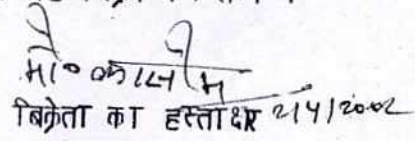 मो० कासीम
बिक्रेता का हस्ताक्षर 2/4/2002